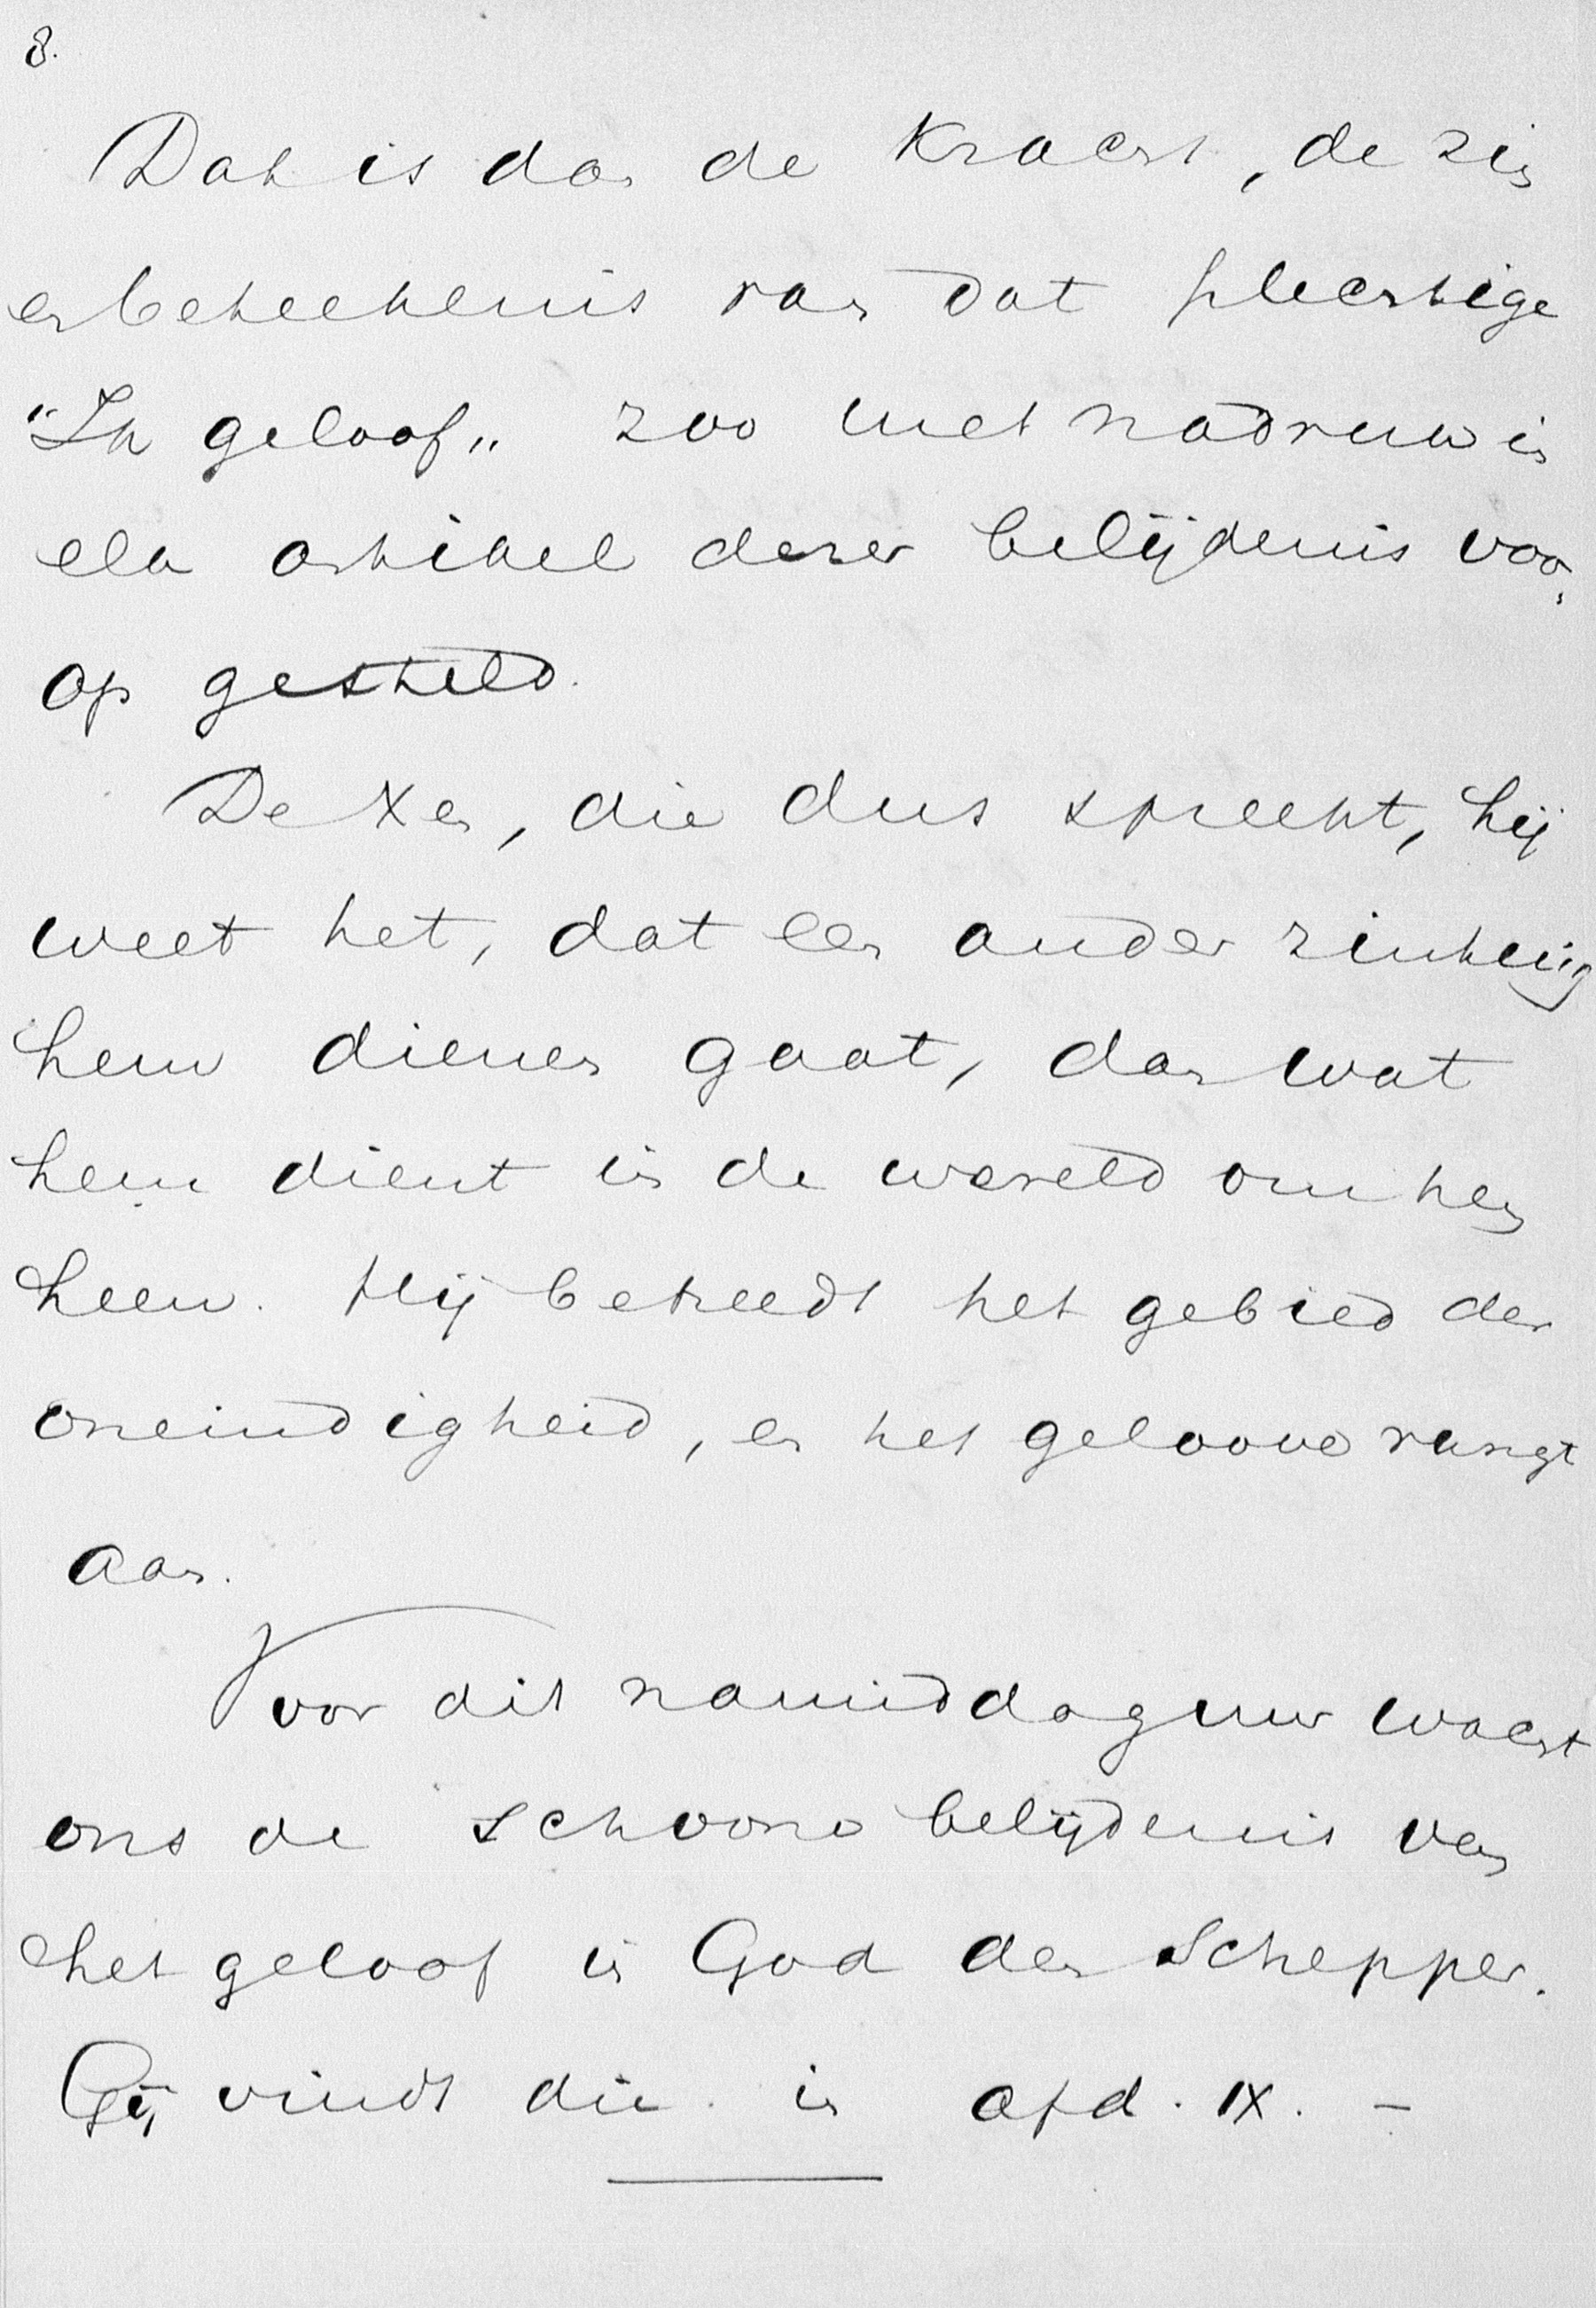 8.
Dat is dan de kracht, de zin
en beteekenis van dat plechtige
"Ik geloof„ zoo met nadruk in
elk artikel dezer belijdenis voor
op gesteld.
De mensch, die dus spreekt, hij
weet het, dat een ander zintuig
hem dienen gaat, dan wat
hem dient in de wereld om hem
heen. Hij betreedt het gebied der
oneindigheid, en het gelooven vangt
aan.
Voor dit namiddaguur wacht
ons de schoone belijdenis van
het geloof in God den Schepper.
Gij vindt die in afd. IX. –